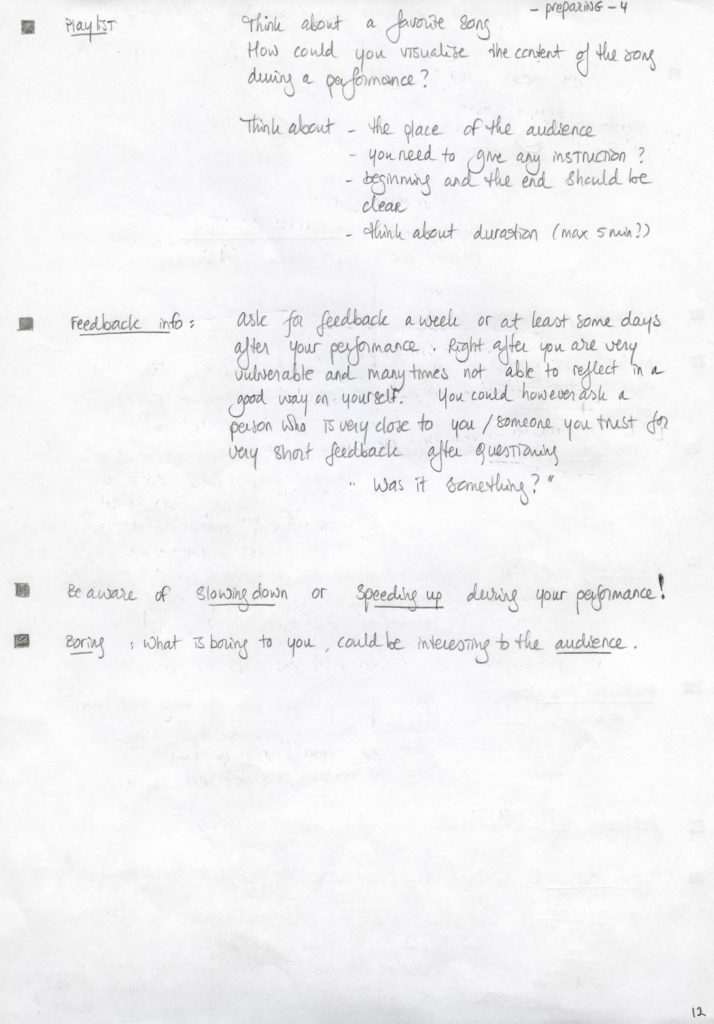 - preparing - 4
Playlist
Think about a favorite song
How could you visualise the content of the song
during a performance?
Think about - the place of the audience
- you need to give any instruction?
- beginning and the end should be
clear
- think about duration (max 5 min?)
Feedback info: ask for feedback a week or at least some days
after your performance. Right after you are very
vulverable and many times not able to reflect in a
good way on yourself. You could however ask a
person who is very close to you / someone you trust for
very short feedback after questioning
" Was it something? "
Be aware of slowing down or speeding up during your performance!
Boring : what is boring to you, could be interesting to the audience.
12